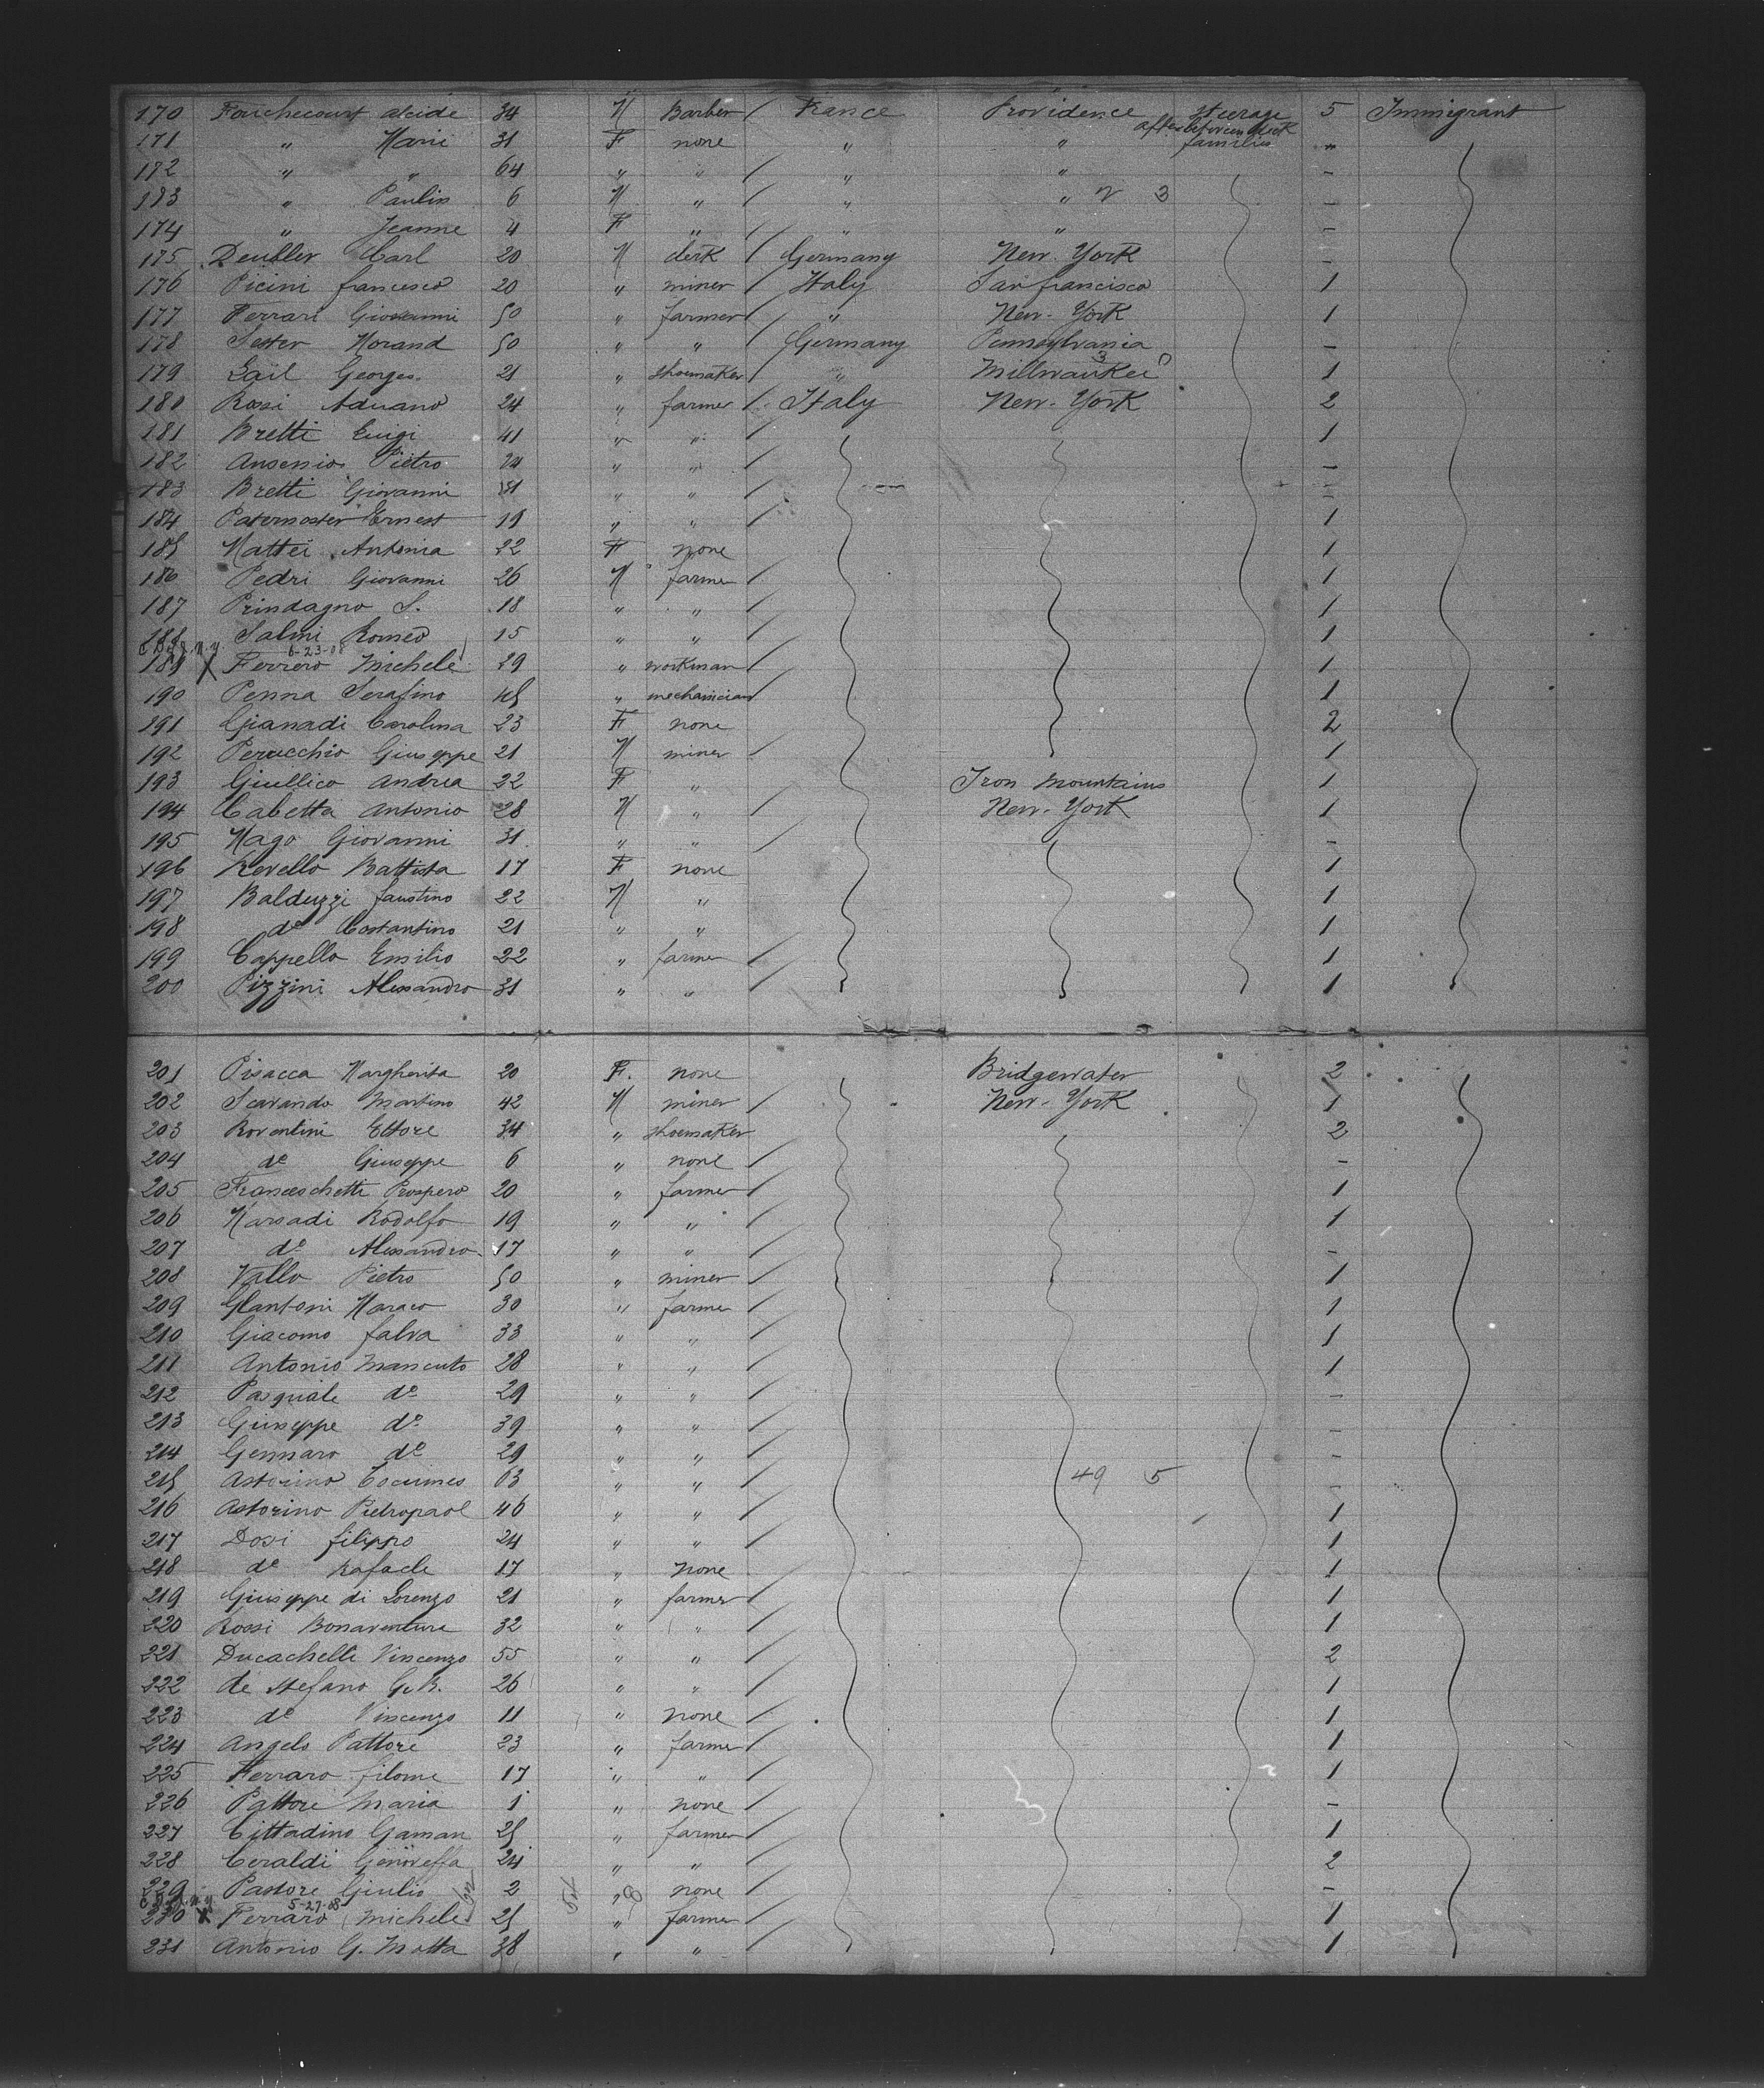 170 Fouchecourt alcide 34 M Barber / France Providence steerage 5 Immigrant
171 " Marie 31 F none " " after between deck families "
172 " " 64 " " / " " -
173 " Paulin 6 M " / " " 2 3 -
174 " Jeanne 4 F " " " -
175 Deubler Carl 20 M clerk / Germany New-York -
176 Picini francesco 20 " miner / Italy San francisco 1
177 Ferrari Giovanni 50 " farmer / " New-York 1
178 Sester Morand 50 " " Germany Pennsylvania -
179 Gail Georges 21 " shoemaker / " Millwaukei 3 0 1
180 Rossi Aduano 24 " farmer / Italy New-York 2
181 Bretti Luigi 41 " " / 1
182 Ansensio Pietro 24 " " / -
183 Bretti Giovanni " " / -
184 Paternoster Ernest 19 " " / 1
185 Mattei Antonia 22 F none 1
186 Pedri Giovanni 26 M farmer / 1
187 Prindagno S. 18 " " / 1
188 Salmi Romeo 15 " " / 1
6-23-08
189 X Ferrero Michele 29 " workman / 1
190 Penna Serafino 45 " mechanician / 1
191 Gianadi Carolina 23 F none 2
192 Perucchio Giuseppe 21 M miner / 1
193 Giullico Andrea 22 F " Iron Mountains 1
194 Cabetta Antonio 28 M " / New-York 1
195 Mago Giovanni 31 " " / -
196 Revello Battista 17 F none 1
197 Balduzzi faustino 22 M " 1
198 do Costantino 21 " " 1
199 Cappello Emilio 22 " farmer / 1
200 Pizzini Alessandro 31 " " / 1
201 Pisacca Margherita 20 F. none Bridgewater 2
202 Scavando Martino 42 M miner / New-York 1
203 Roventini Ettore 34 " shoemaker 2
204 do Giuseppe 6 " none / -
205 Franceschetti Prospero 20 " farmer / 1
206 Marsadi Rodolfo 19 " " / 1
207 do Alessandro 17 " " / -
208 Vallo Pietro 50 " miner / 1
209 Glantoni Marco 30 " farmer / 1
210 Giacomo falva 33 " " / 1
211 Antonio Mancuto 28 " " / 1
212 Pasquale do 29 " " / -
213 Giuseppe do 39 " " / -
214 Gennaro do 29 " " / -
215 Astorino 63 " " / 49 5 -
216 Astorino Pietropaol 46 " " / 1
217 Dosi filippo 24 " " / 1
218 do Rafaele 17 " none 1
219 Giuseppe di Lorenzo 21 " farmer / 1
220 Rossi Bonaventura 32 " " / 1
221 Ducachelli Vincenzo 55 " " / 2
222 de Stefano G.B. 26 " " / 1
223 do Vincenzo 11 " none / 1
224 Angelo Pattore 23 " farmer / 1
225 Ferraro filome 17 " " / 1
226 Pattore Maria 1 " none / -
227 Cittadino Gaman 25 " farmer / 1
228 Ceraldi Genoveffa 24 " " / 2
229 Pastore Giulio 2 " none / -
5-27-08
230 X Ferraro Michele 25 " farmer / 1
231 Antonio G. Motta 38 " " / 1